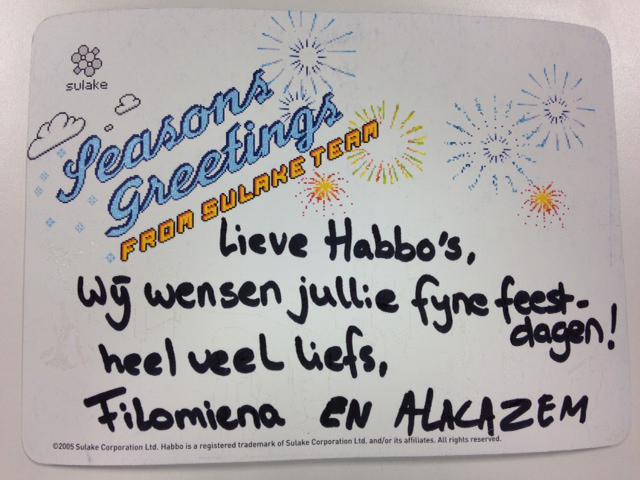 sulake
Seasons
Greetings
FROM SULAKE TEAM
Lieve Habbo's,
Wij wensen jullie fyne feest-
dagen!
heel veel liefs,
Filomiena EN ALACAZEM
©2005 Sulake Corporation Ltd. Habbo is a registered trademark of Sulake Corporation Ltd. and/or its affiliates. All rights reserved.